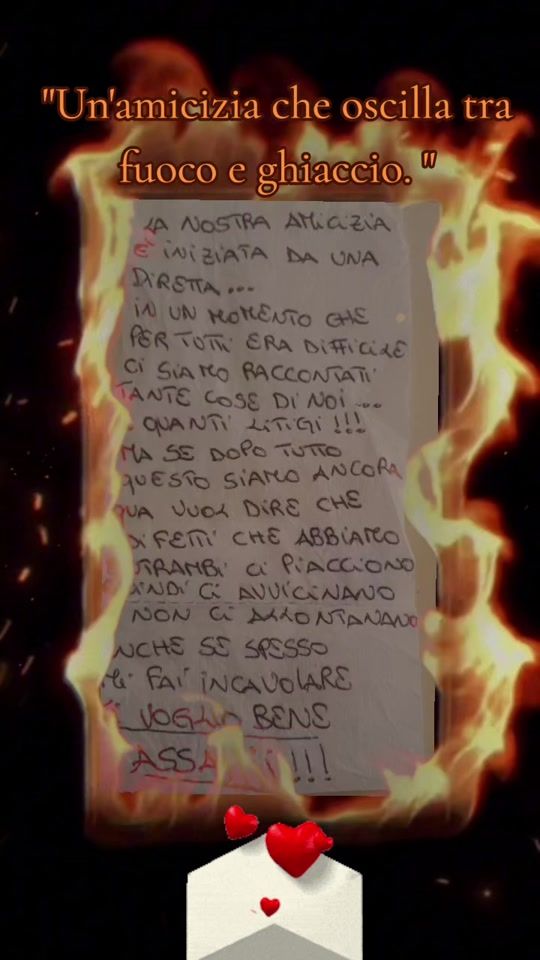 "Un'amicizia che oscilla tra
fuoco e ghiaccio. "
LA NOSTRA AMICIZIA
E' INIZIATA DA UNA
DIRETTA...
IN UN MOMENTO CHE
PER TUTTI ERA DIFFICILE
CI SIAMO RACCONTATI
TANTE COSE DI NOI ...
QUANTI LITIGI !!!
MA SE DOPO TUTTO
QUESTO SIAMO ANCORA
QUA VUOL DIRE CHE
DIFETTI CHE ABBIAMO
TRAMBI CI PIACCIONO
INDI CI AVVICINANO
NON CI ALLONTANANO
NCHE SE SPESSO
MI FAI INCAVOLARE
VOGLIO BENE
ASSA !!!